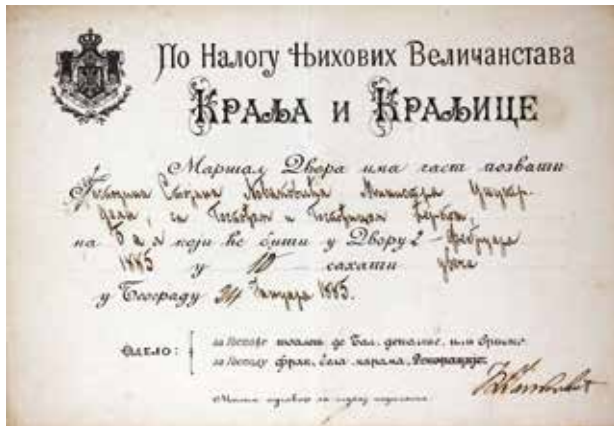 По Налогу Њихових Величанстава
Краља и Краљице
Маршал Двора има част позвати
Господина Стојана Новаковића Министра Унутр.
дела, са Госпођом и Госпођицом
на Бал који ће бити у Двору 2 Фебруара
1885 у 10 сахати увече
у Београду 24 Јануара 1885.
Одело:
за Госпође тоалет де Бал, деколте, или Српско
за Господу фрак, бела марама, Декорације.
Моли одговор